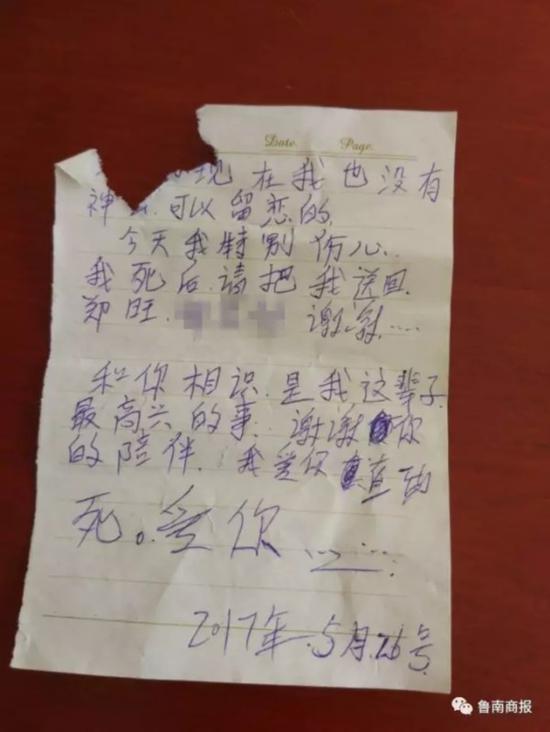 Date. Page.
现在我也没有
神 可以留恋的.
今天我特别伤心.
我死后.请把我送回.
郑旺. 谢谢.....
和你相识.是我这辈子.
最高兴的事.谢谢你
的陪伴.我爱你直到
死。爱你......
2017年.5月.26号.
鲁南商报